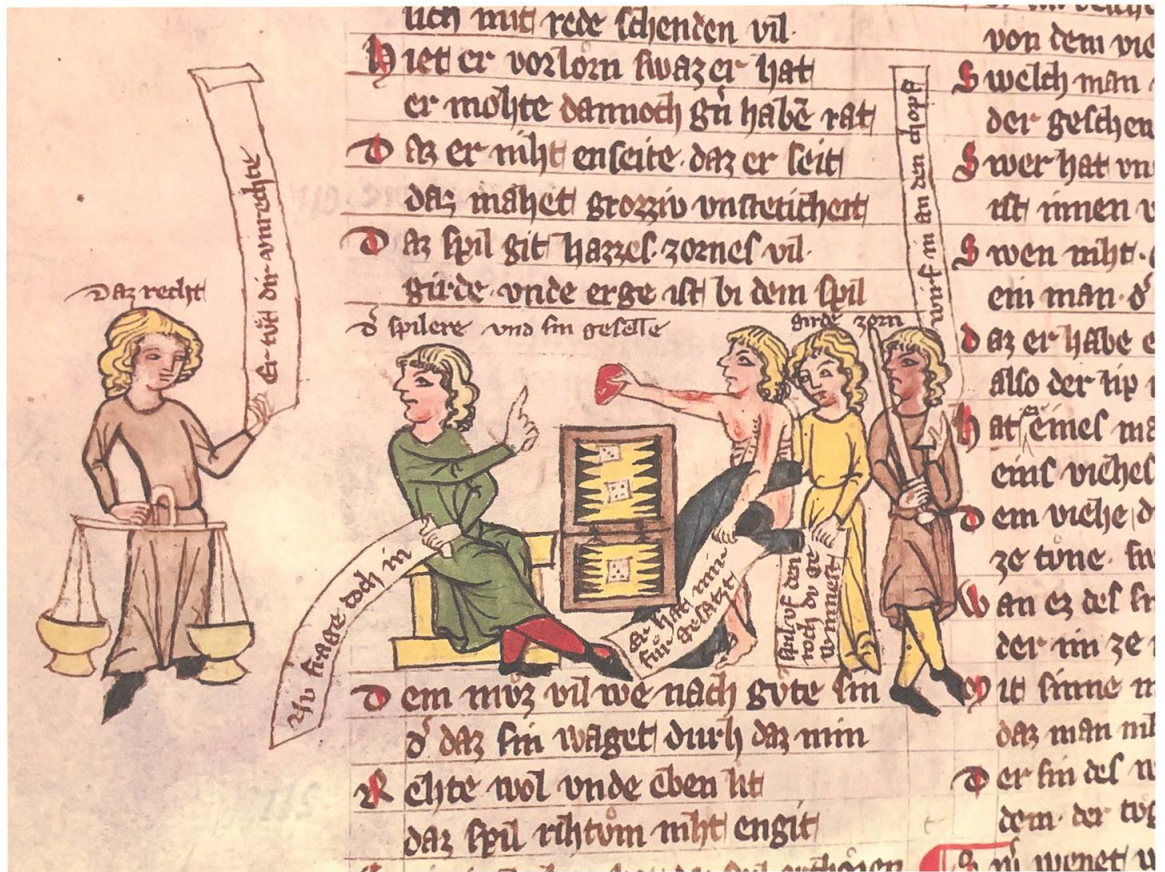 lich mit rede schenden vil·
Hiet er vorlorn swaz er hat
er mohte dannoch gv̊ habē rat
Daz er niht enseite· daz er seit
daz machet grozziv vnsteticheit
Daz spil git hazzes· zornes vil·
girde· vnde erge ist bi dem spil
Daz recht
Er tůt dir vnrechte
d' spilere vnd sin geselle
girde zorn
wirf in an den chopf
Nv frage doch in
er hat min
sin gesatzt
spil vf den
roch dv ge
winnest
Dem mvz vil we nach gvte sin
d' daz sin waget durh daz min
Rehte wol vnde eben lit
daz spil rihtům niht engit
von dem
Swelch man
der geschen
Swer hat vn
ist innen
Swen niht·
ein man· d'
daz er habe
also der
hat eines
eins viehes
dem viehe
ze tvne·
Wan ez des
der im ze
Mit sinne
daz man
Der sin des
dem· der
wenet